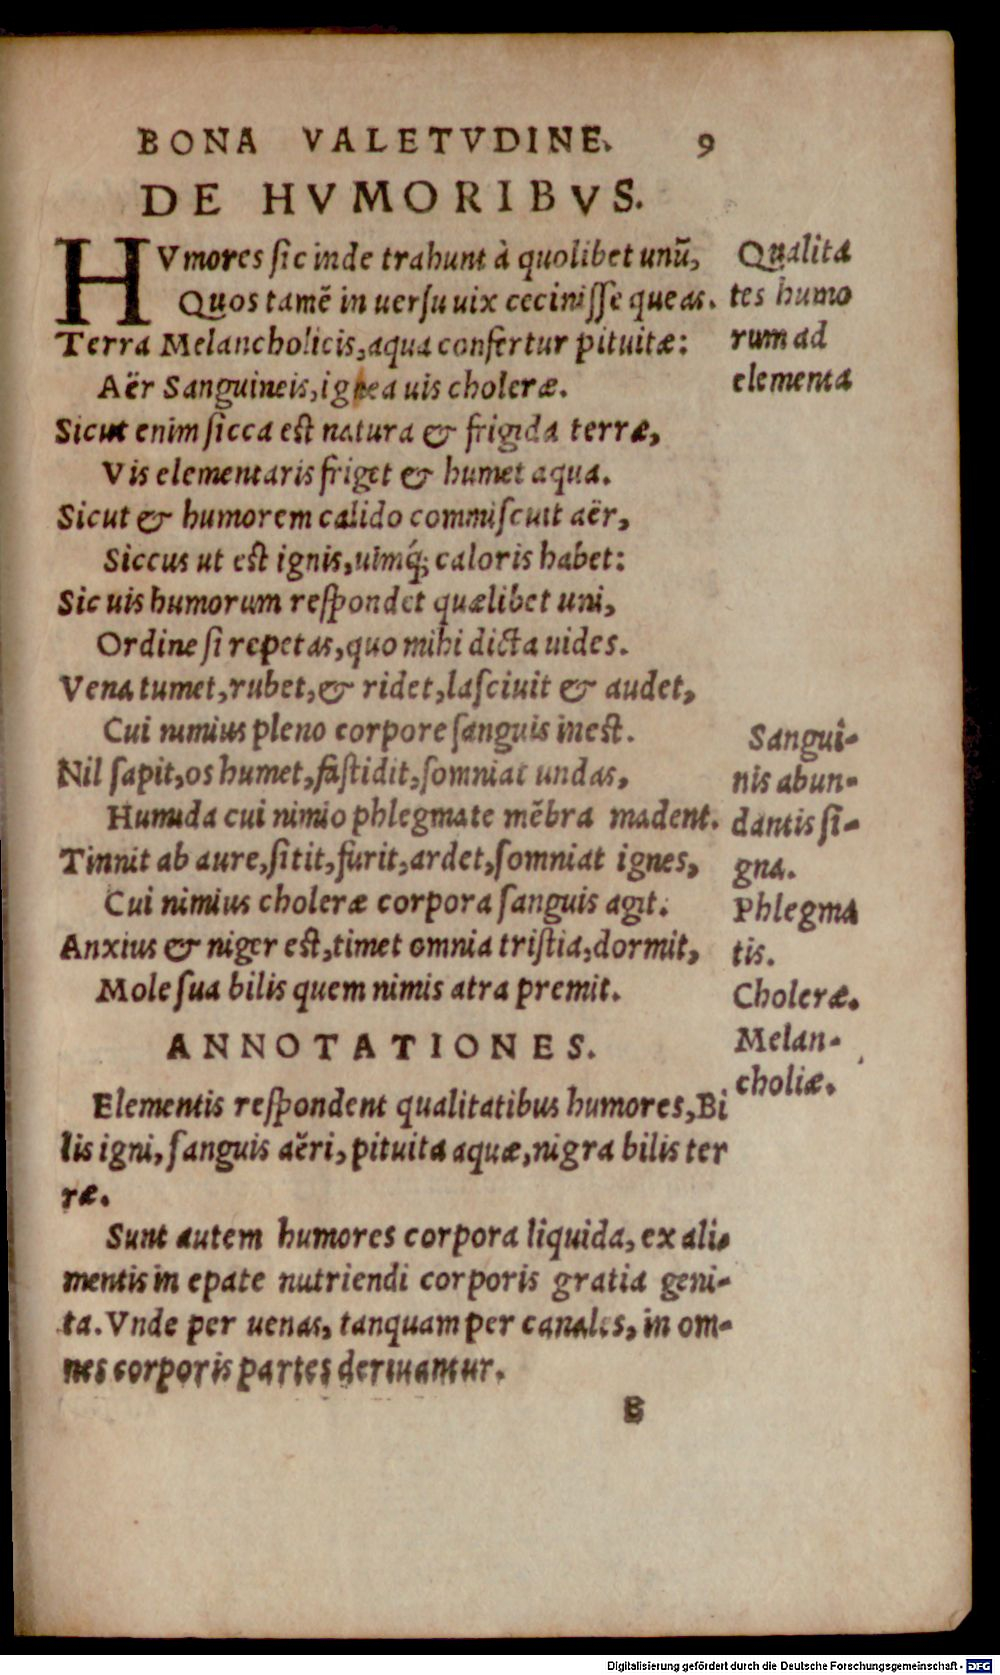 BONA VALETVDINE. 9
DE HVMORIBVS.
HVmores sic inde trahunt à quolibet unũ,
Quos tamẽ in uersu uix cecinisse queas.
Terra Melancholicis, aqua confertur pituitæ:
Aër Sanguineis, ignea uis choleræ.
Sicut enim sicca est natura & frigida terræ,
Vis elementaris friget & humet aqua.
Sicut & humorem calido commiscuit aër,
Siccus ut est ignis, uimq́; caloris habet:
Sic uis humorum respondet quælibet uni,
Ordine si repetas, quo mihi dicta uides.
Vena tumet, rubet, & ridet, lasciuit & audet,
Cui nimius pleno corpore sanguis inest.
Nil sapit, os humet, fastidit, somniat undas,
Humida cui nimio phlegmate mẽbra madent.
Tinnit ab aure, sitit, furit, ardet, somniat ignes,
Cui nimius choleræ corpora sanguis agit.
Anxius & niger est, timet omnia tristia, dormit,
Mole sua bilis quem nimis atra premit.
Qualita
tes humo
rum ad
elementa
Sangui-
nis abun-
dantis si-
gna.
Phlegma
tis.
Choleræ.
Melan-
choliæ.
ANNOTATIONES.
Elementis respondent qualitatibus humores, Bi
lis igni, sanguis aëri, pituita aquæ, nigra bilis ter
ræ.
Sunt autem humores corpora liquida, ex ali-
mentis in epate nutriendi corporis gratia geni-
ta. Vnde per uenas, tanquam per canales, in om-
nes corporis partes deriuantur.
B
Digitalisierung gefördert durch die Deutsche Forschungsgemeinschaft - DFG